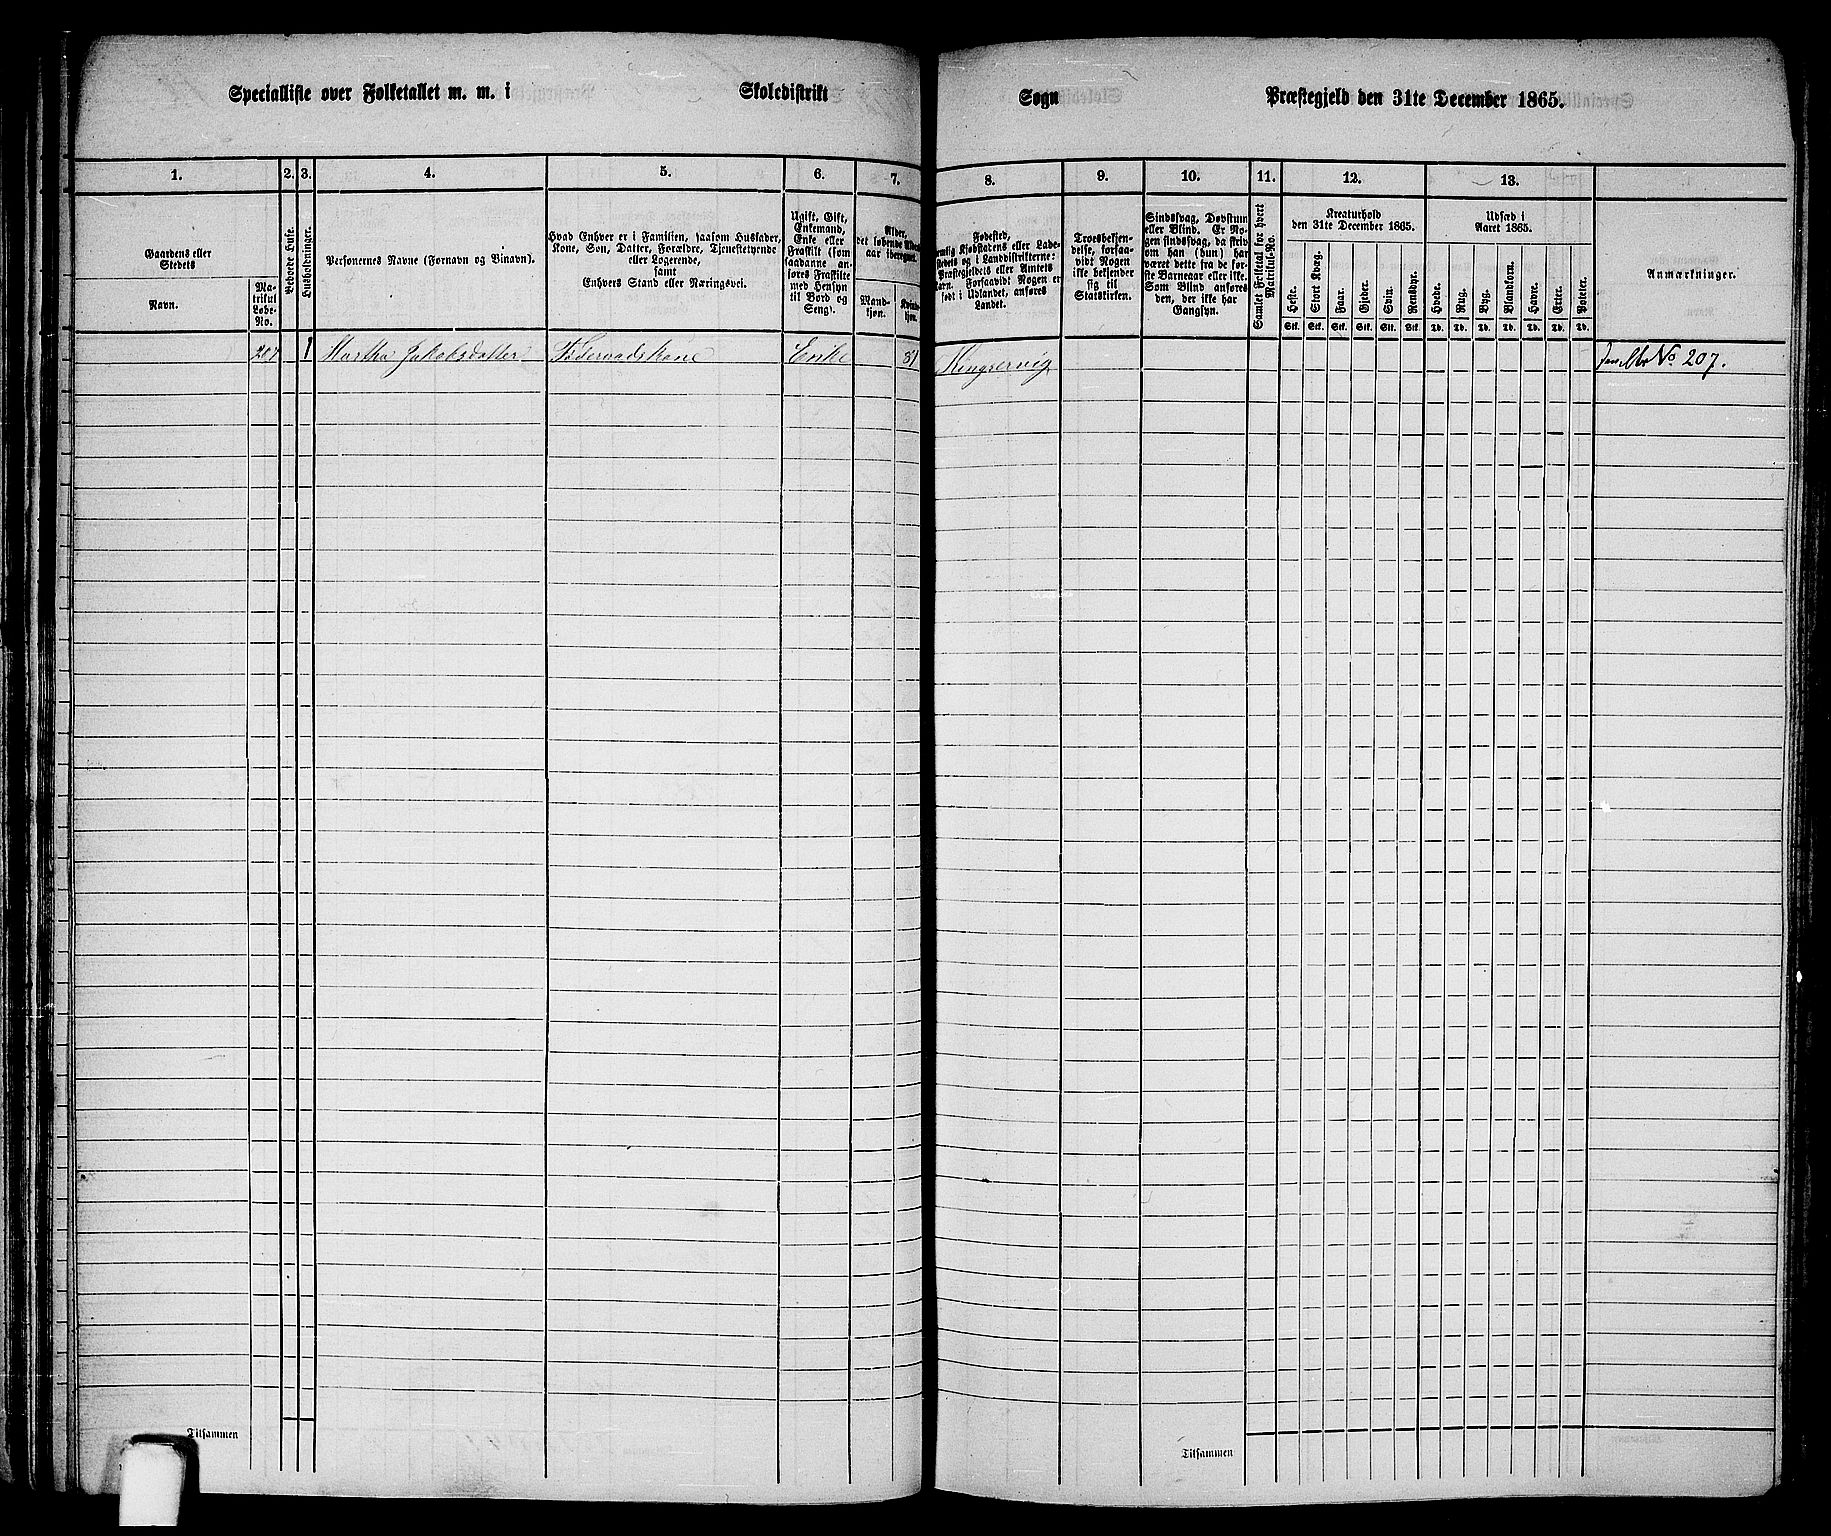 Specialliste over Folketallet m. m. i Skoledistrikt Sogn Præstegjeld den 31te December 1865.
1. 2. 3. 4. 5. 6. 7. 8. 9. 10. 11. 12. 13.
Gaardens eller
Stedets
Navn.
Ma-
trikul
Løbe-
No.
Beboede Huse.
Husholdninger.
Personernes Navne (Fornavn og Binavn).
Hvad Enhver er i Familien, saasom Husfader,
Kone, Søn, Datter, Forældre, Tjenestetyende
eller Logerende,
samt
Enhvers Stand eller Næringsvei.
Ugift, Gift,
Enkemand,
Enke eller
Fraskilt (som
saadanne an-
føres Fraskilte
med Hensyn
til Bord og
Seng).
Alder,
det løbende Alders-
aar iberegnet.
Mand-
kjøn.
Kvinde-
kjøn.
Fødested,
nemlig Kjøbstadens eller Lade-
stedets og i Landdistrikterne:
Præstegjeldets eller Amtets
Navn. Forsaavidt Nogen er
født i Udlandet, anføres
Landet.
Troesbekjen-
delse, forsaa-
vidt Nogen
ikke bekjender
sig til
Statskirken.
Sindssvag, Døvstum
eller Blind. Er No-
gen sindssvag, da skriv
om han (hun) har
været dette fra de før-
ste Barneaar eller ikke.
Som Blind anføres
den, der ikke har
Gangsyn.
Samlet Folketal for hvert
Matrikul-No.
Kreaturhold
den 31te December 1865.
Heste. Stort Kvæg. Faar. Gjeder. Svin. Rensdyr.
Stk. Stk. Stk. Stk. Stk. Stk.
Udsæd i
Aaret 1865.
Hvede. Rug. Byg. Blandkorn. Havre. Erter. Poteter.
Td. Td. Td. Td. Td. Td. Td.
Anmærkninger.
207 1 Martha Jakobsdatter Føderaadskone Enke 81 Kingservig No. 207.
Tilsammen Tilsammen